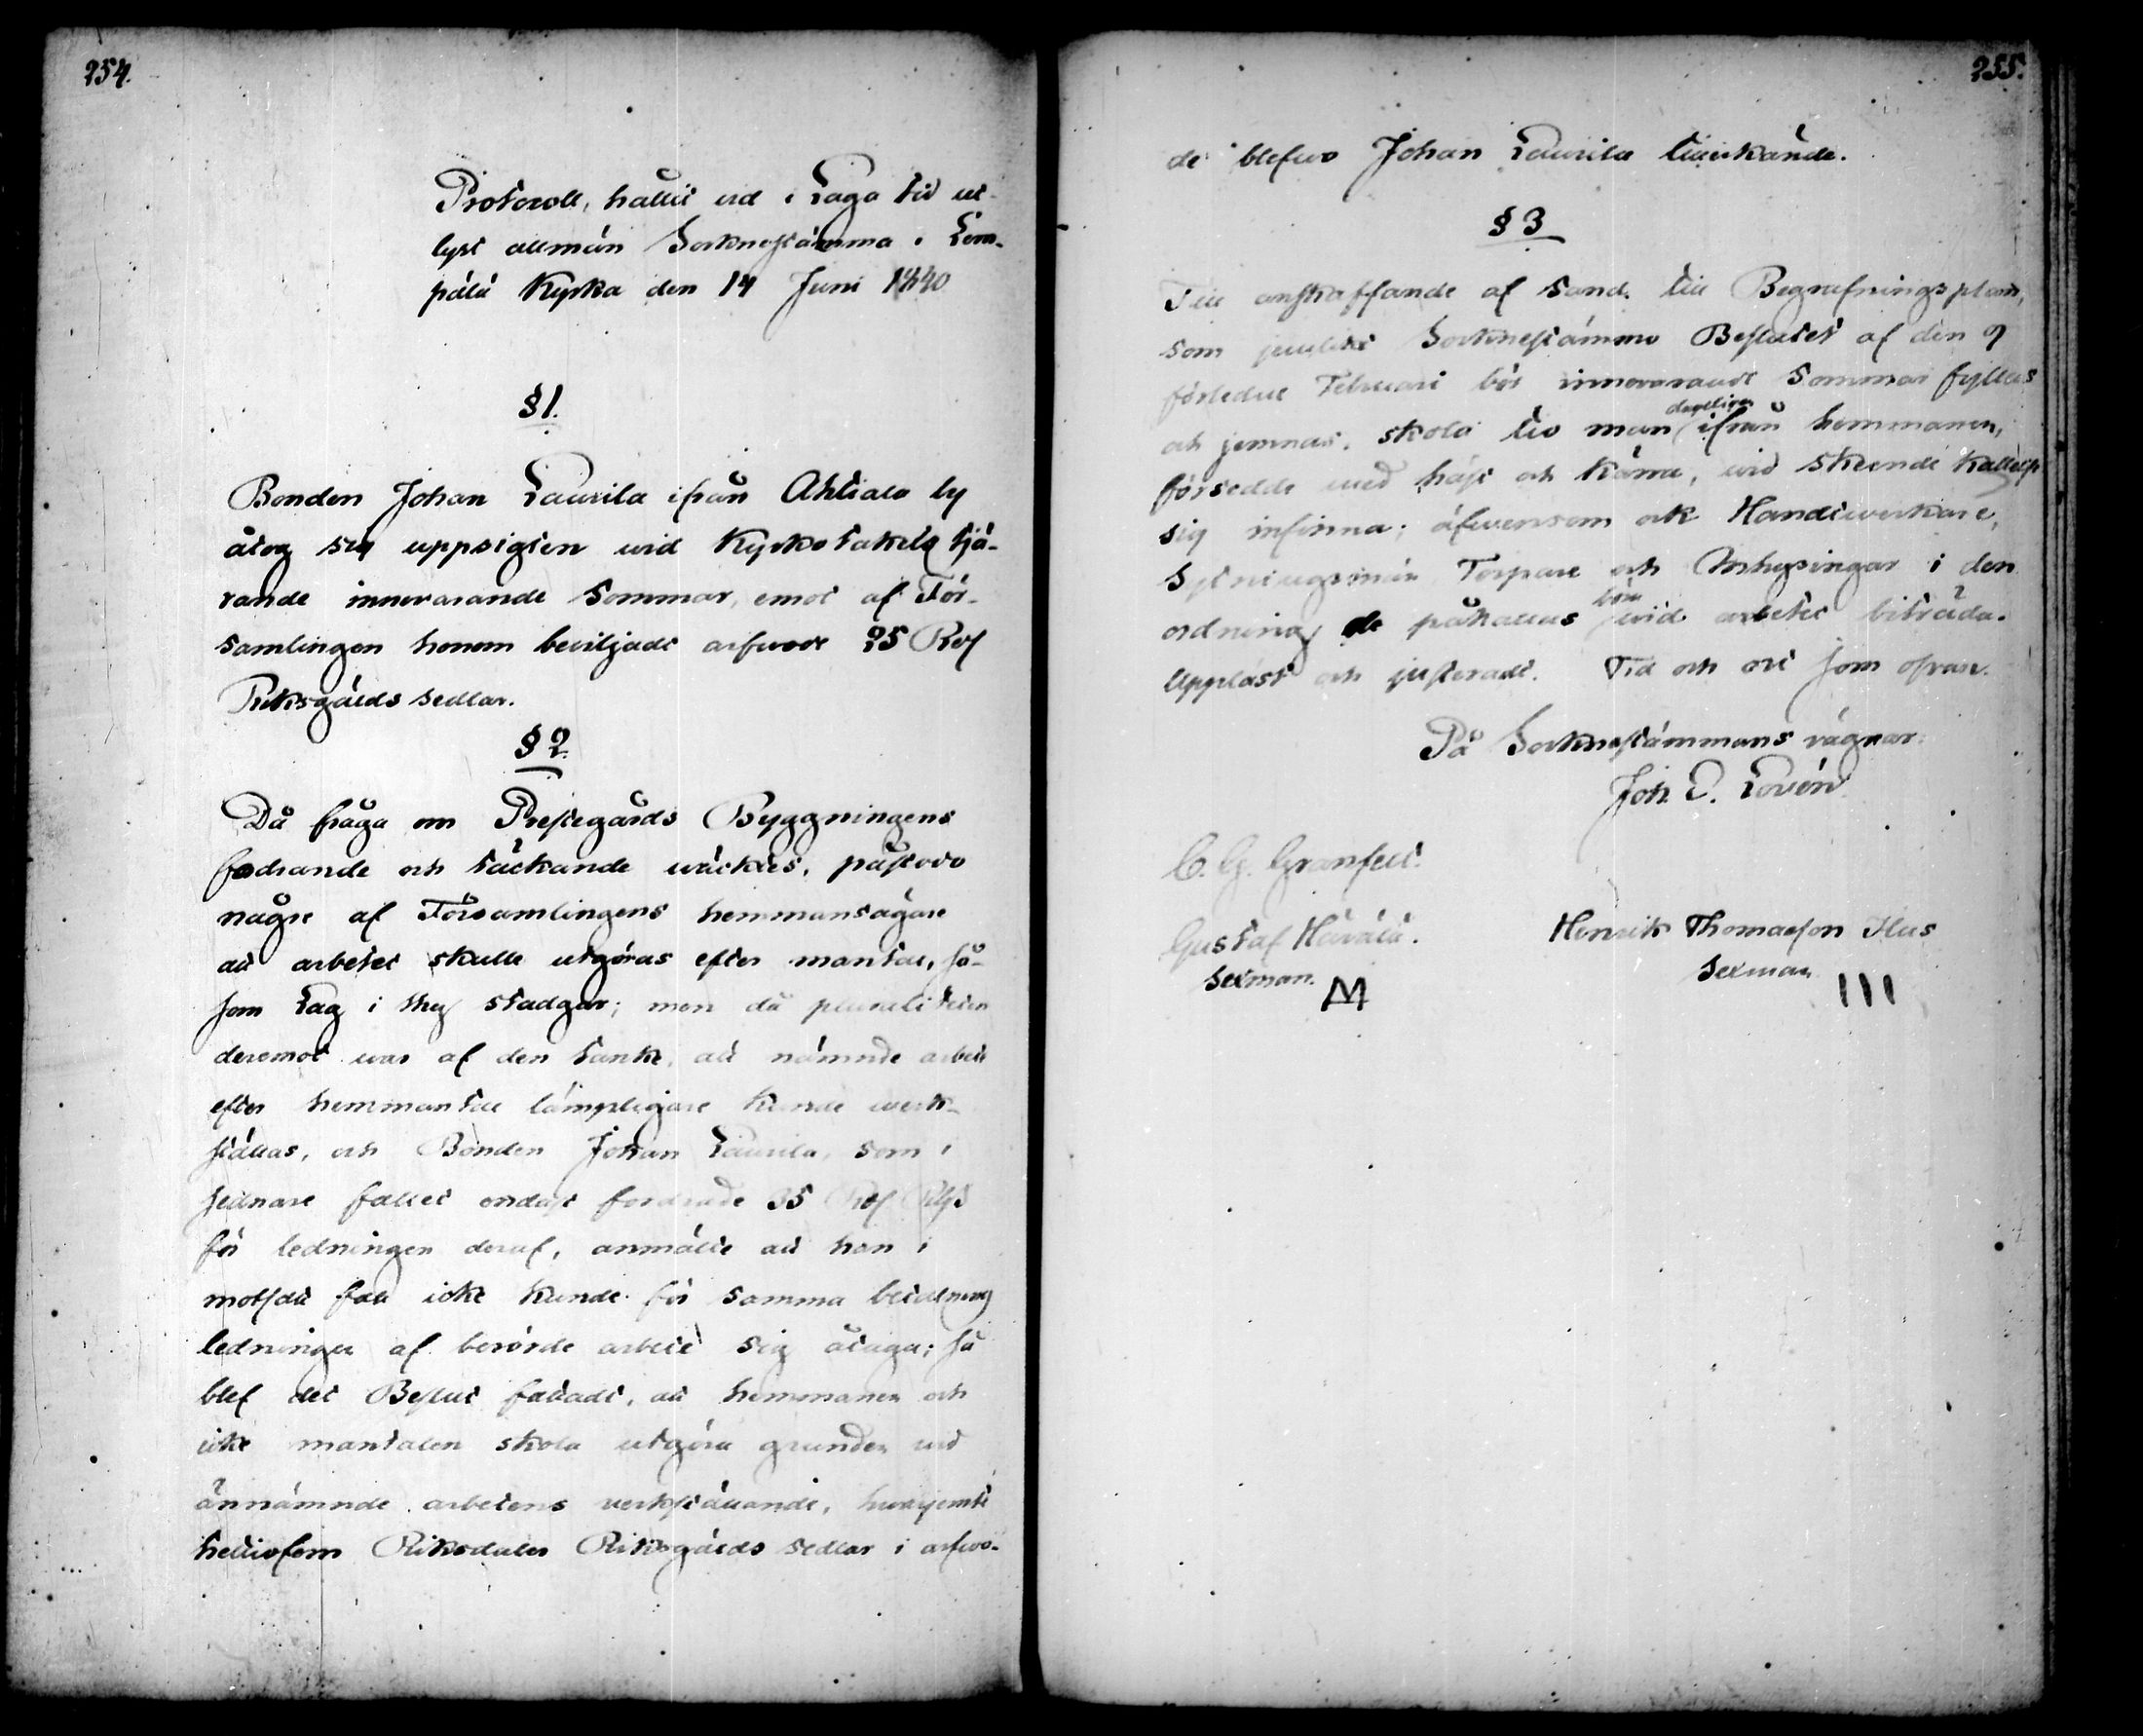 254.
Protocoll, hållit vid i Laga tid ut-
lyst allmän Socknestämma i Lem-
pälä Kyrka den 14 Juni 1840
§ 1.
Bonden Johan Laurila ifrån Ahtiala by
åtog sig uppsigten vid Kyrkotakets tjä-
rande innevarande Sommar, emot af För-
samlingen honom beviljadt arfvode 25 Rdr
Riksgälds sedlar.
§ 2.
Då fråga om Prestegårds Byggningens
fodrande och täckande wäcktes, påstodo
någre af Församlingens hemmansägare
att arbetet skulle utgöras efter mantal, så-
som Lag i thy stadgar; men då pluraliteten
deremot war af den tanke, att nämnde arbete
efter hemmantal lämpligare kunde werk-
ställas, och Bonden Johan Laurila, som i
sednare fallet endast fordrade 35 Rdr Rgs
för ledningen deraf, anmälte att han i
motsatt fall icke kunde för samma betalning
ledningen af berörde arbete sig åtaga; så
blef det Beslut fattadt, att hemmanen och
icke mantalen skola utgöra grunden vid
ännämnde arbetens verkställande, hvarjemte
trettiofem Riksdaler Riksgälds sedlar i arfvo-
255.
de blefwo Johan Laurila tillerkände.
§ 3
Till anskaffande af Sand till Begrafningsplan,
som jemlikt Socknestämmo Beslutet af den 9
förledne Februari bör innevarande Sommar fyllas
och jemnas, skola tio man dageligen ifrån hemmanen,
försedde med häst och kärra, vid skeende kallelse
sig infinna; äfwensom ock Handtwerkare,
Sytningsmän Torpare och Inhysingar i den
ordning de påkallas böra vid arbetet biträda.
Uppläst och justeradt. Tid och ort som ofvan.
På Socknestämmans vägnar:
Joh. E. Lovén
C. G. Granfelt.
Gustaf Härälä.
Sexman.
M
Henrik Thomasson Hus
Sexman
III